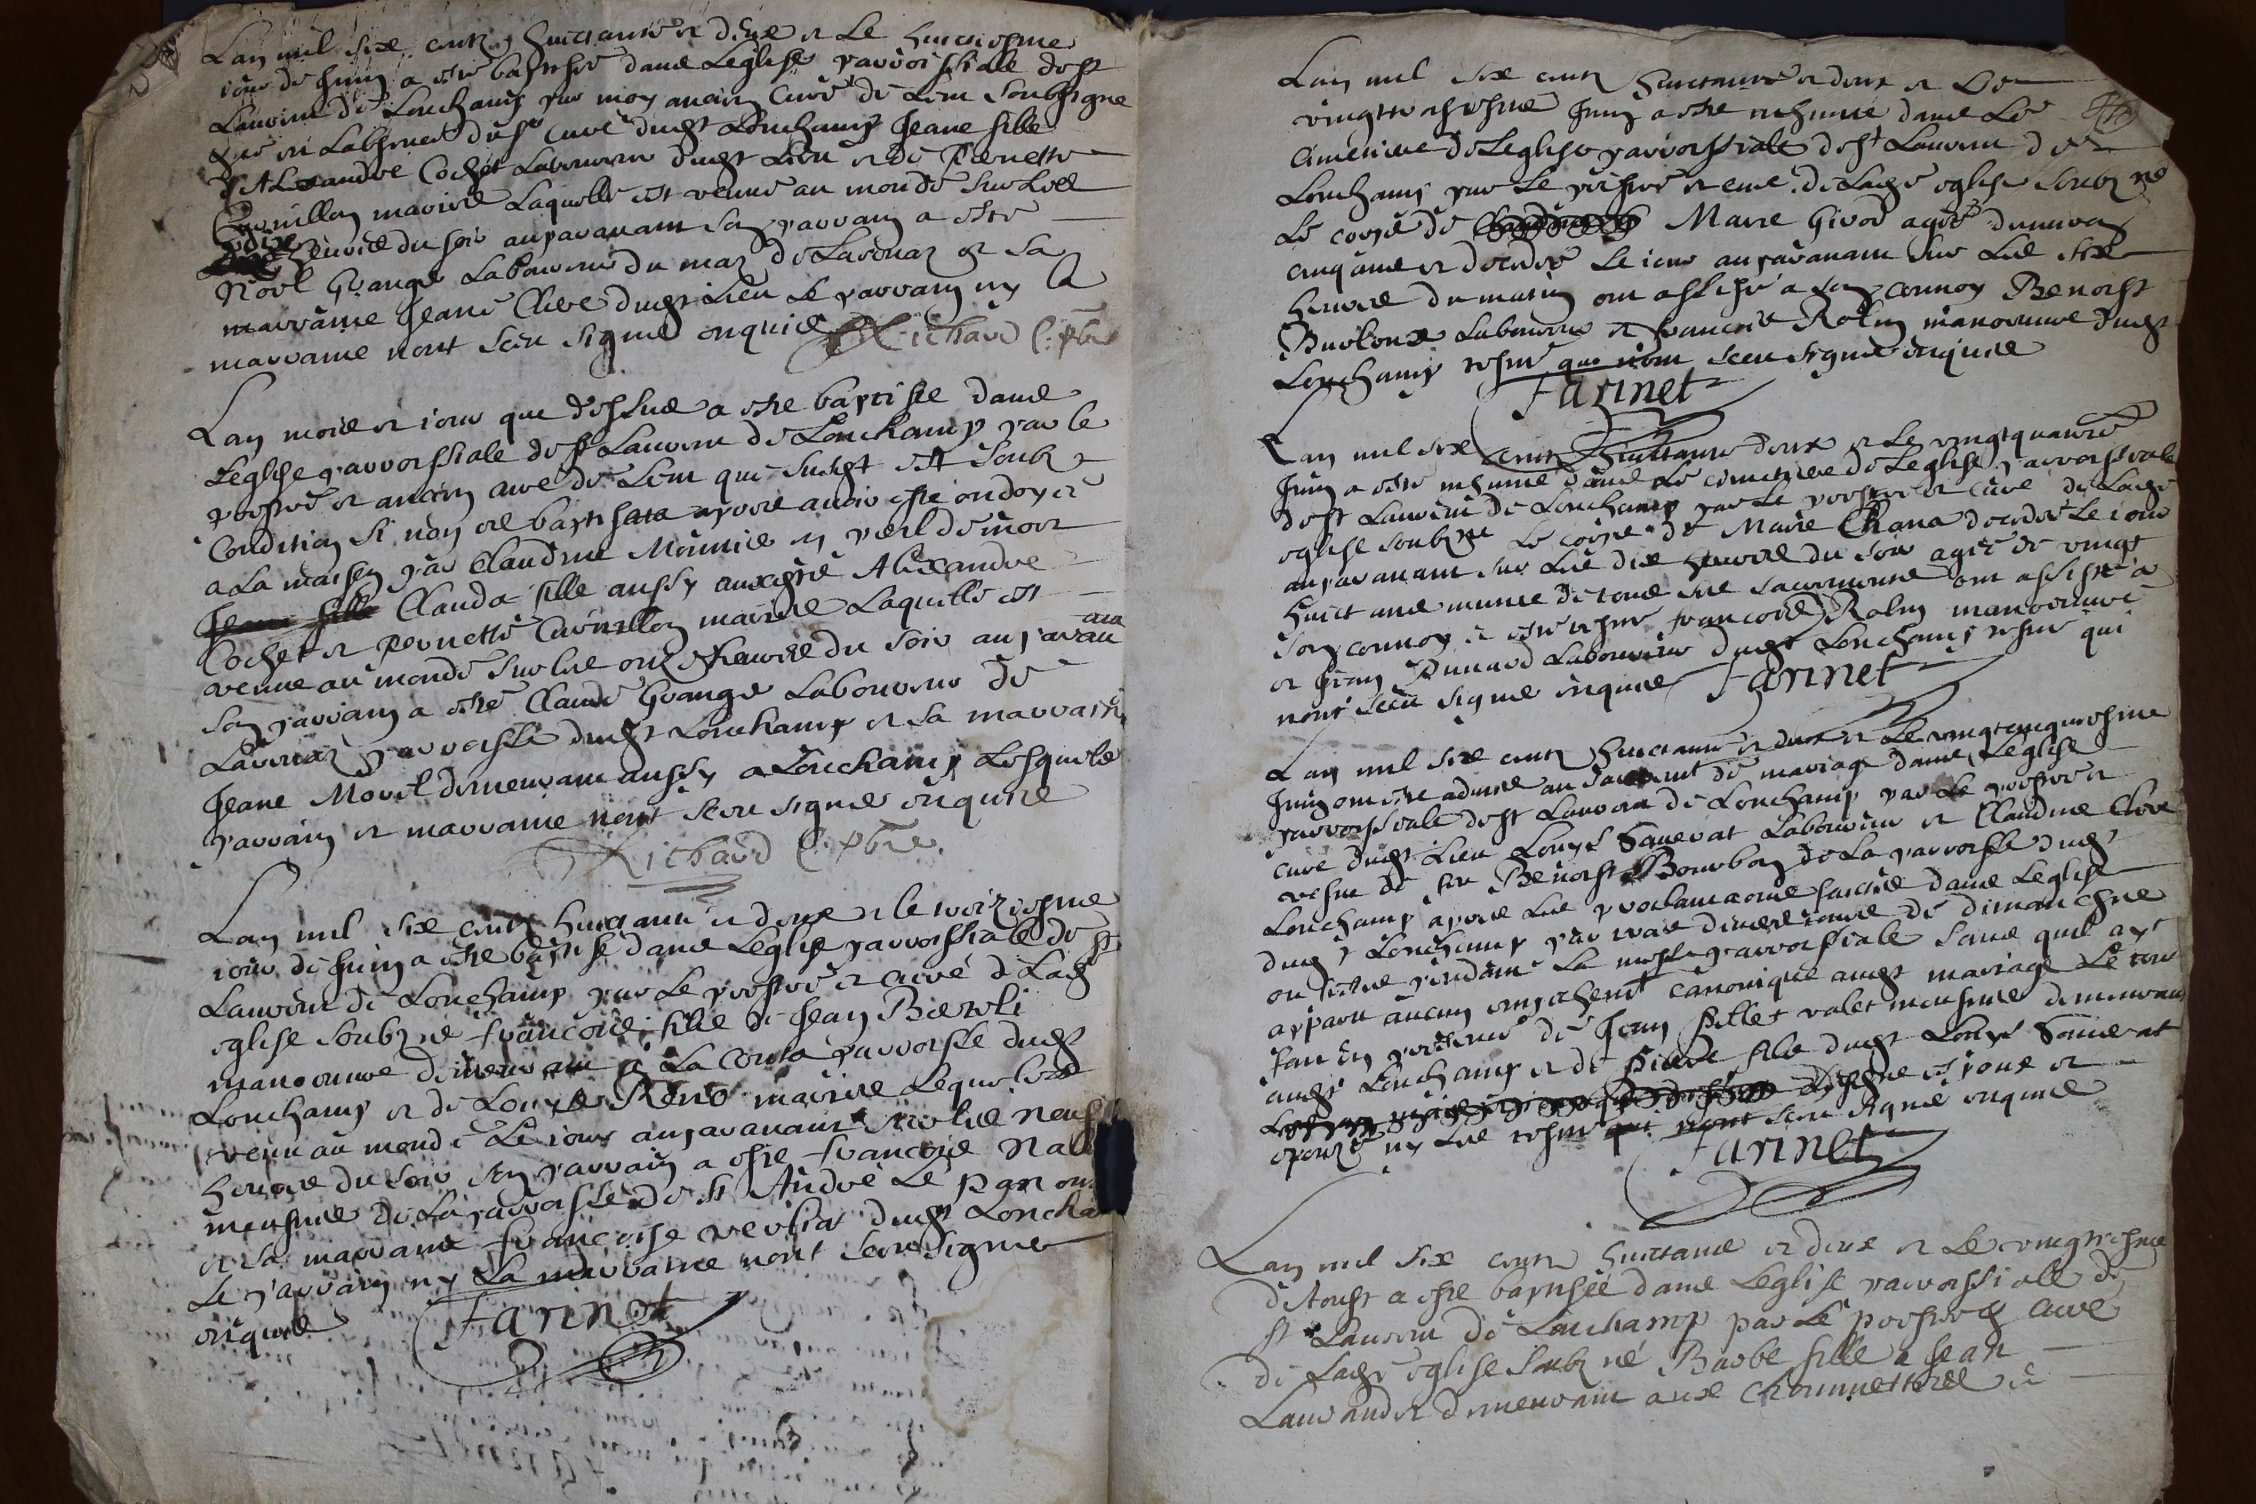 Lan mil six centz huictante et deux et Le huictiesme
iour de Juing a este baptisee dans Leglise parroissialle de st
Laurent de Lonchamp par moy ancien Curé de Lieu soubsigné
en Labsence du sr Curé dudt Lonchamp Jeane fille
d'Alexandre Cochet Laboureur dudt Lieu et de Pernette
Cuvillon mariés Laquelle est venue au monde sur Les
dix heures du soir auparavant son parrain a esté
Noel Grange Laboureur du maz de Lavenaz et sa
marraine Jeane Clerc dudt Lieu Le parrain ny la
marraine nont sceu signer enquis Richard C. pbre
Lan mois et iour que dessus a este baptisee dans
Leglise parroissiale de st Laurent de Lonchamp par le
prestre et ancien curé de Lieu que susdt est soubz
Condition si non es baptisata apres avoir esté ondoyée
a La maison par Claudine Monnier en peril de mort
Jeane fille Clauda fille aussy auxdits Alexandre
Cochet et Pernette Cuvillon mariés Laquelle est
venue au monde sur les onze heures du soir auparavant
son parrain a esté Claude Grange Laboureur de
Lavenaz parroisse dudt Lonchamp et sa marraine
Jeane Morel demeurant aussy a Lonchamp Lesquels
parrain et marraine nont sceu signer enquis
Richard C. pbre.
Lan mil six centz huictante et deux et le treiziesme
iour de Juing a este baptisé dans Leglise parroissiale de st
Laurent de Lonchamp par Le prestre et curé de Ladt
eglise soubzné francois fils de Jean
manouvre demeurant a La Couta parroisse dudt
Lonchamp et de Louyse mariés Lequel est
venu au monde Le iour auparavant sur les neuf
heures du soir son parrain a este francois
meusnier de La parroisse de st André Le panoux
et sa marraine francoise dudt Loncha
Le parrain ny La marraine nont sceu signer
enquis Farinet
Lan mil six centz huictante et deux et Le
vingttroisiesme Juing a este inhumé dans Le
Cimetiere de Leglise parroissiale de st Laurent de
Lonchamp par Le prestre et curé de Ladte eglise soubzné
Le corps de Marie Girod agée denviron
cinq ans et decedée Le iour auparavant sur Les six
heures du matin ont assisté a son convoy Benoist
Laboureur et francois Rolin manouvre dudt
Lonchamp tesmoins qui nont sceu signer enquis
Farinet
Lan mil six centz huictante deux et Le vingtquatre
Juing a este inhumé dans Le cimetiere de Leglise parroissiale
de st Laurent de Lonchamp par Le prestre et curé de Ladte
eglise soubzné Le corps de Marie Chana decedée Le iour
auparavant sur Les dix heures du soir agée de vingt
huict ans munie de tous ses sacremens ont assisté a
son convoy et esté tesmoins francois Rolin manouvre
et Jean Laboureur dudt Lonchamp tesmoins qui
nont sceu signer enquis Farinet
Lan mil six centz huictante et deux et Le vingtcinquiesme
Juing ont este admis au sacrement de mariage dans Leglise
parroissiale de st Laurent de Lonchamp par Le prestre et
curé dudt Lieu Louys Sanerat Laboureur et Claudine Clerc
vesve de feu Benoist Bourbon de La parroisse dudt
Lonchamp apres Les proclamations faictes dans Leglise
dudt Lonchamp par trois divers iours de dimanches
ou festes pendant La messe parroissiale sans quil ayt
apparu aucun empechemt canonique audt mariage Le tout
faict en presence de Jean Pillet valet meusnier demeurant
audt Lonchamp et de fils dudt Louys Sanerat
et
epouzé ny Les tesmoins qui nont sceu signer enquis
Farinet
Lan mil six centz huictante et deux et Le vingtiesme
daoust a este baptisée dans Leglise parroissiale de
st Laurent de Lonchamp par Le prestre et curé
de Ladte eglise soubzné Barbe fille a Jean
demeurant aux et